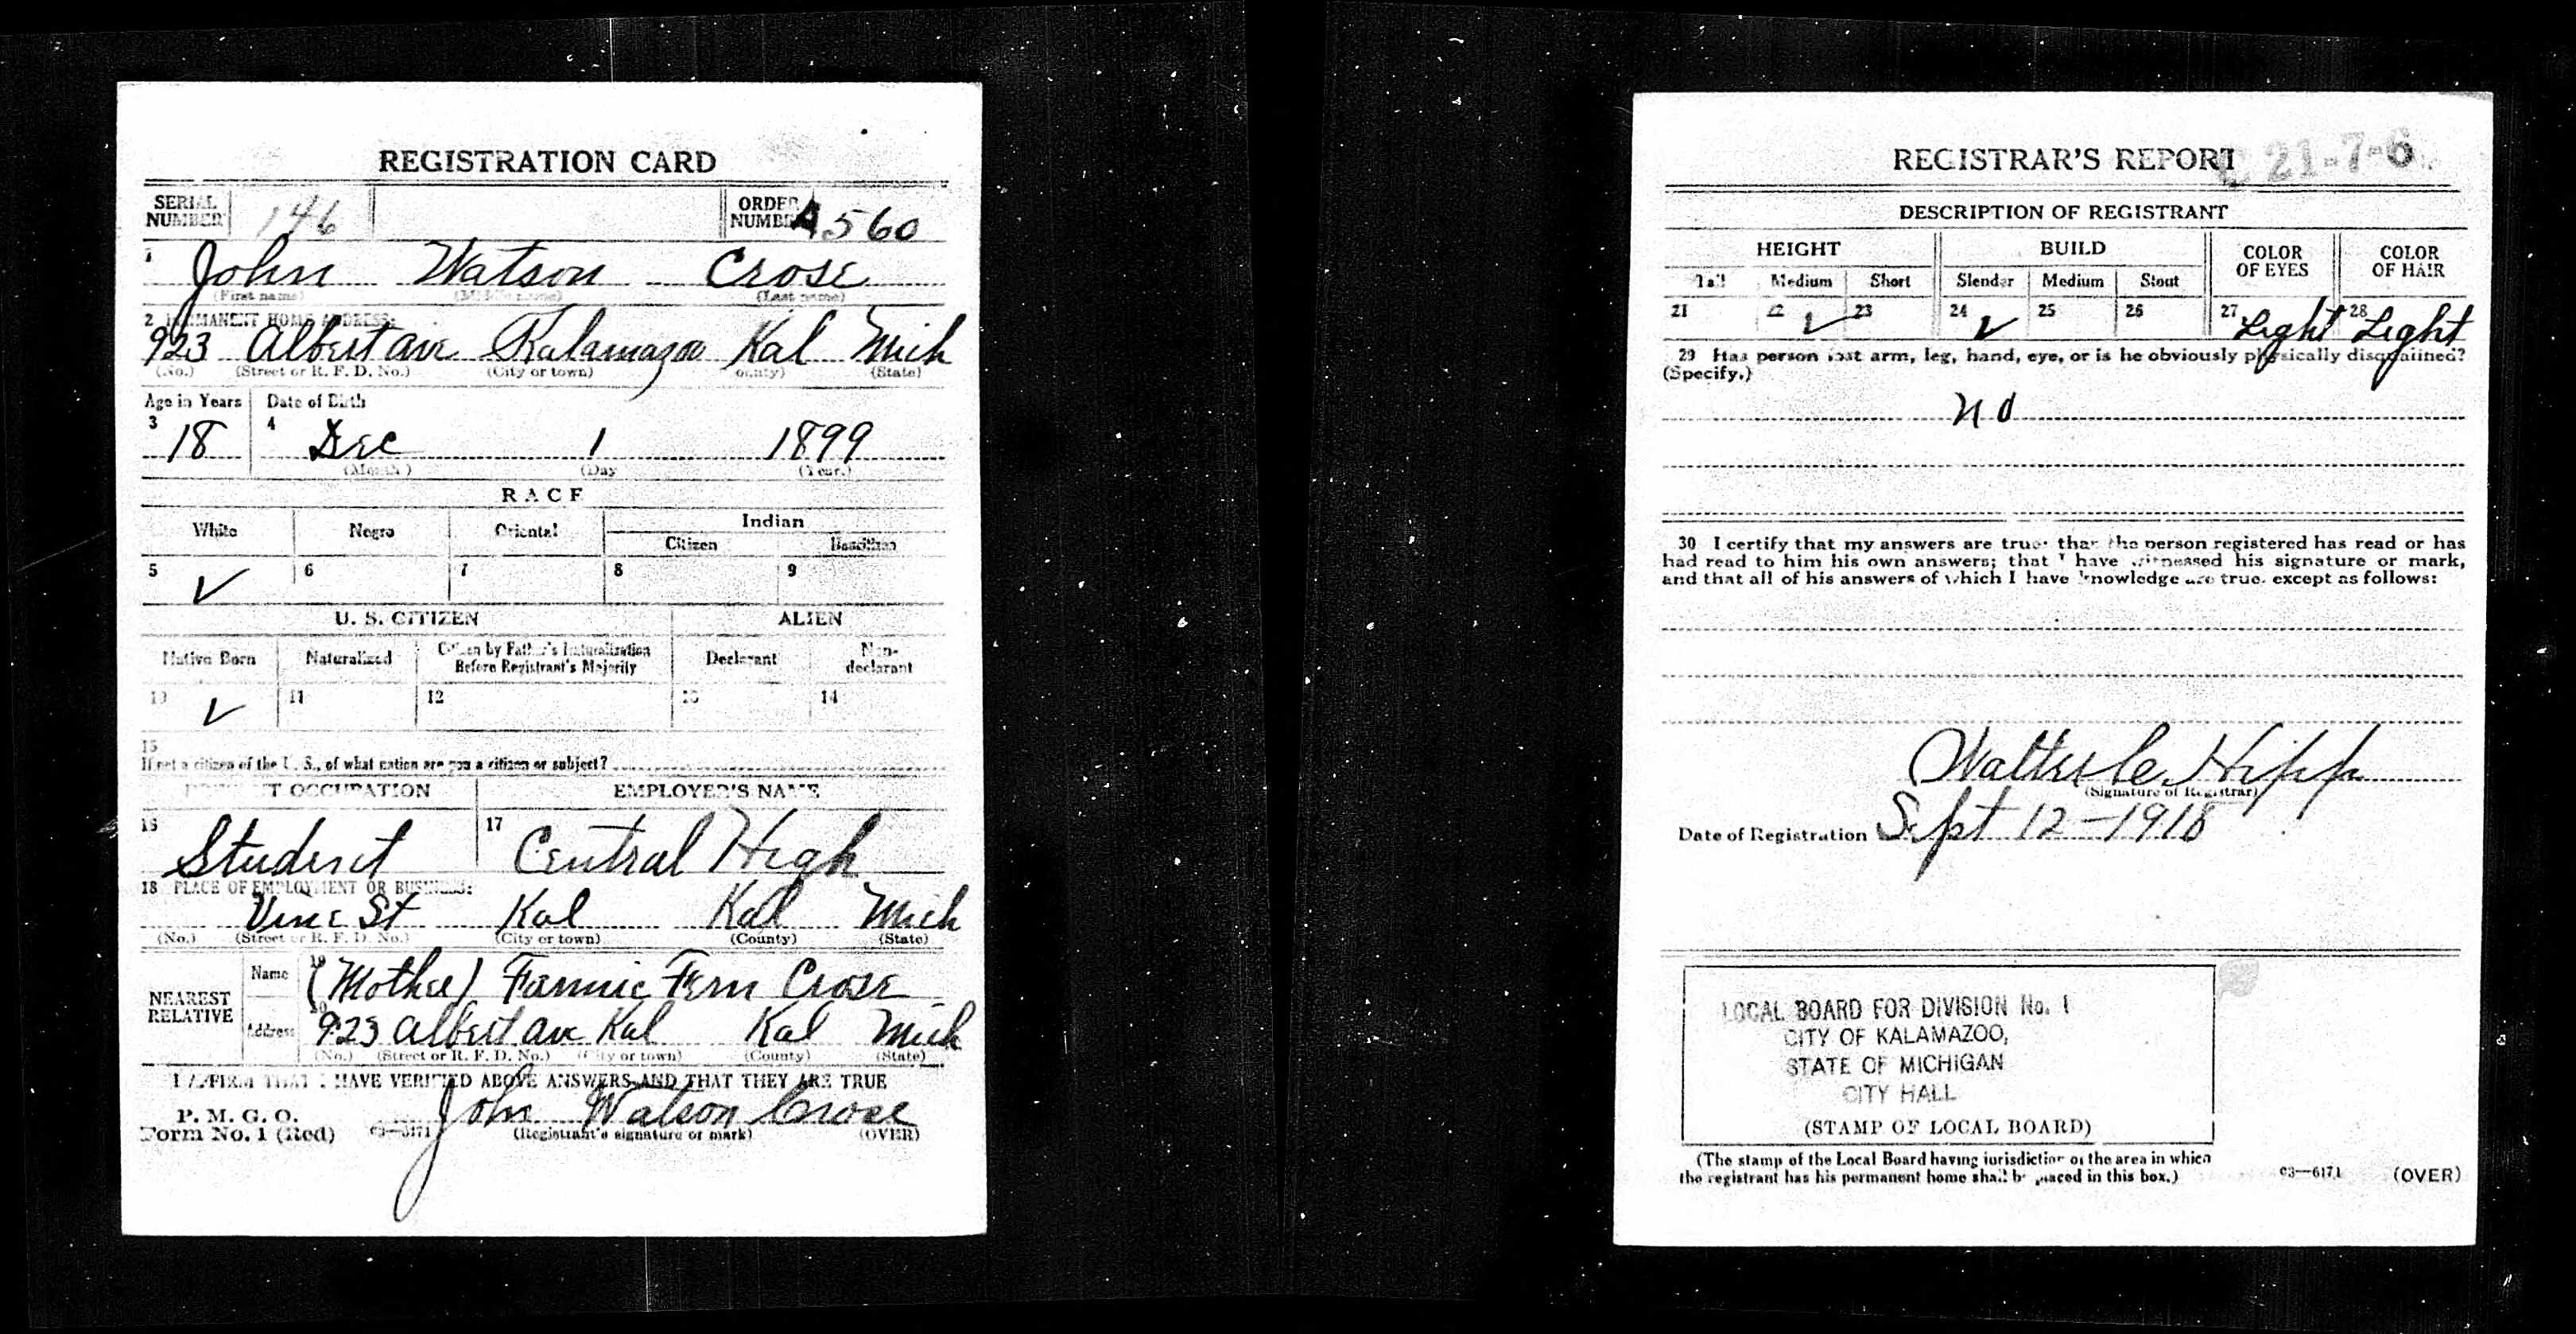 REGISTRATION CARD
SERIAL NUMBER 146 ORDER NUMBER A 560
1 John Watson Crose
(First name) (Middle name) (Last name)
2 PERMANENT HOME ADDRESS:
923 Albert ave Kalamazoo Kal Mich
(No.) (Street or R. F. D. No.) (City or town) (County) (State)
Age in Years Date of Birth
3 18 4 Dec 1 1899
(Month) (Day (Year.)
RACE
White Negro Oriental Indian
Citizen Noncitizen
5 ✓ 6 7 8 9
U. S. CITIZEN ALIEN
Native Born Naturalized Citizen by Father's Naturalization Before Registrant's Majority Declarant Non-declarant
10 ✓ 11 12 13 14
15
If not a citizen of the U. S., of what nation are you a citizen or subject?
PRESENT OCCUPATION EMPLOYER'S NAME
16 Student 17 Central High
18 PLACE OF EMPLOYMENT OR BUSINESS:
Vine St Kal Kal Mich
(No.) (Street or R. F. D. No.) (City or town) (County) (State)
NEAREST RELATIVE Name 19 (Mother) Fannie Fern Crose
Address 20 923 Albert ave Kal Kal Mich
(No.) (Street or R. F. D. No.) (City or town) (County) (State)
I AFFIRM THAT I HAVE VERIFIED ABOVE ANSWERS AND THAT THEY ARE TRUE
P. M. G. O.
Form No. 1 (Red) 03—6171 John Watson Crose
(Registrant's signature or mark) (OVER)
REGISTRAR'S REPORT 21-7-6
DESCRIPTION OF REGISTRANT
HEIGHT BUILD COLOR OF EYES COLOR OF HAIR
Tall Medium Short Slender Medium Stout
21 22 ✓ 23 24 ✓ 25 26 27 Light 28 Light
29 Has person lost arm, leg, hand, eye, or is he obviously physically disqualified?
(Specify.)
no
30 I certify that my answers are true; that the person registered has read or has
had read to him his own answers; that I have witnessed his signature or mark,
and that all of his answers of which I have knowledge are true, except as follows:
Hipp
(Signature of Registrar)
Date of Registration Sept 12-1918
LOCAL BOARD FOR DIVISION No. 1
CITY OF KALAMAZOO,
STATE OF MICHIGAN
CITY HALL
(STAMP OF LOCAL BOARD)
(The stamp of the Local Board having jurisdiction of the area in which
the registrant has his permanent home shall be placed in this box.)
03—6171 (OVER)